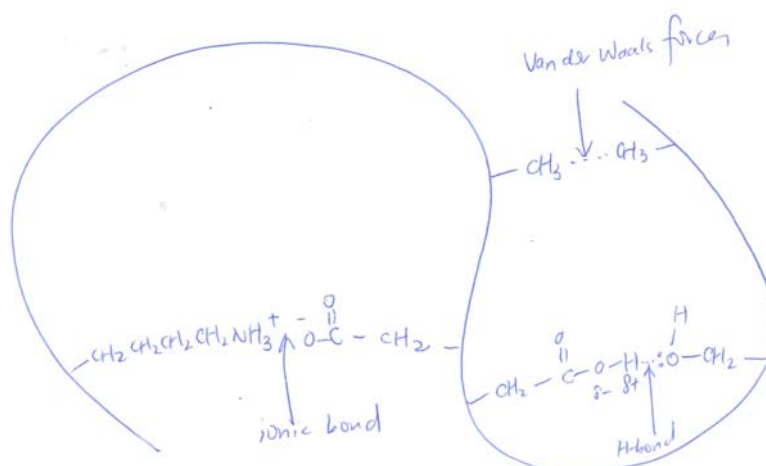 Van der Waals forces
CH3 ... CH3
CH2 CH2 CH2 CH2 NH3+ -O-C(=O)-CH2
ionic bond
CH2-C(=O)-O-H...:O(H)-CH2
δ- δ+
H-bond